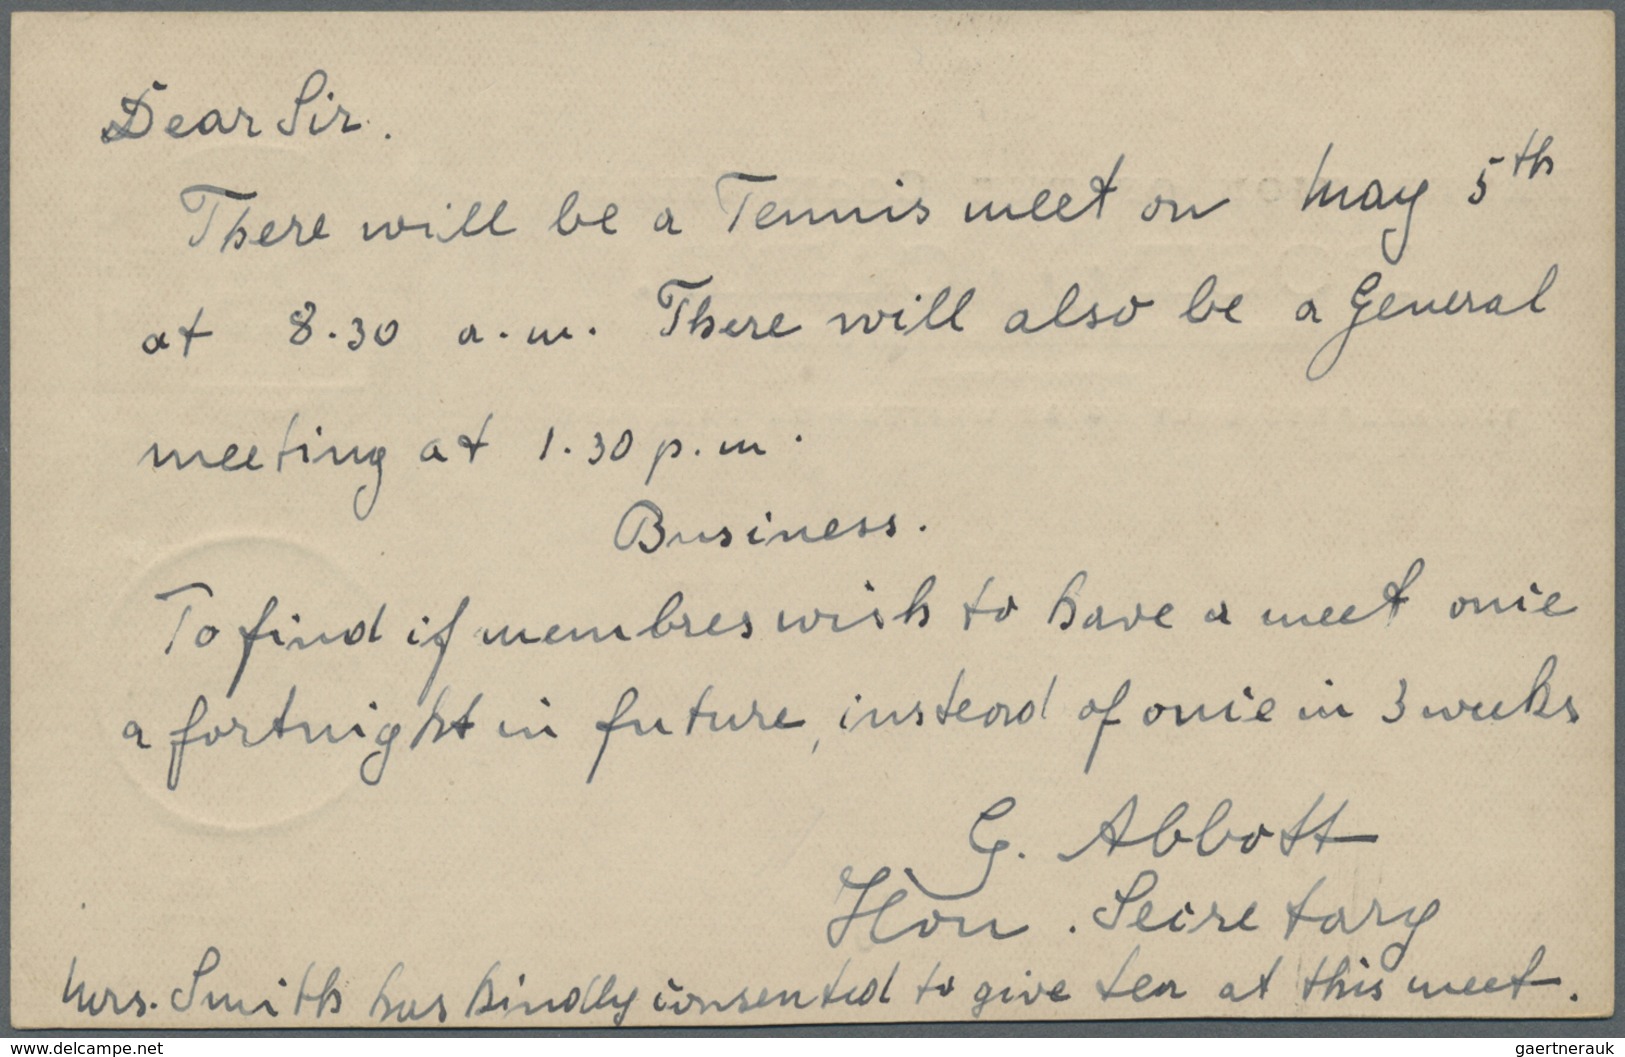 Dear Sir.
There will be a Tennis meet on May 5th
at 8.30 a.m. There will also be a General
meeting at 1.30 p.m.
Business.
To find if membres wish to have a meet once
a fortnight in future, instead of once in 3 weeks
G. Abbott
Hon. Secretary
Mrs. Smith has kindly consented to give tea at this meet.
www.delcampe.net
gaertnerauk